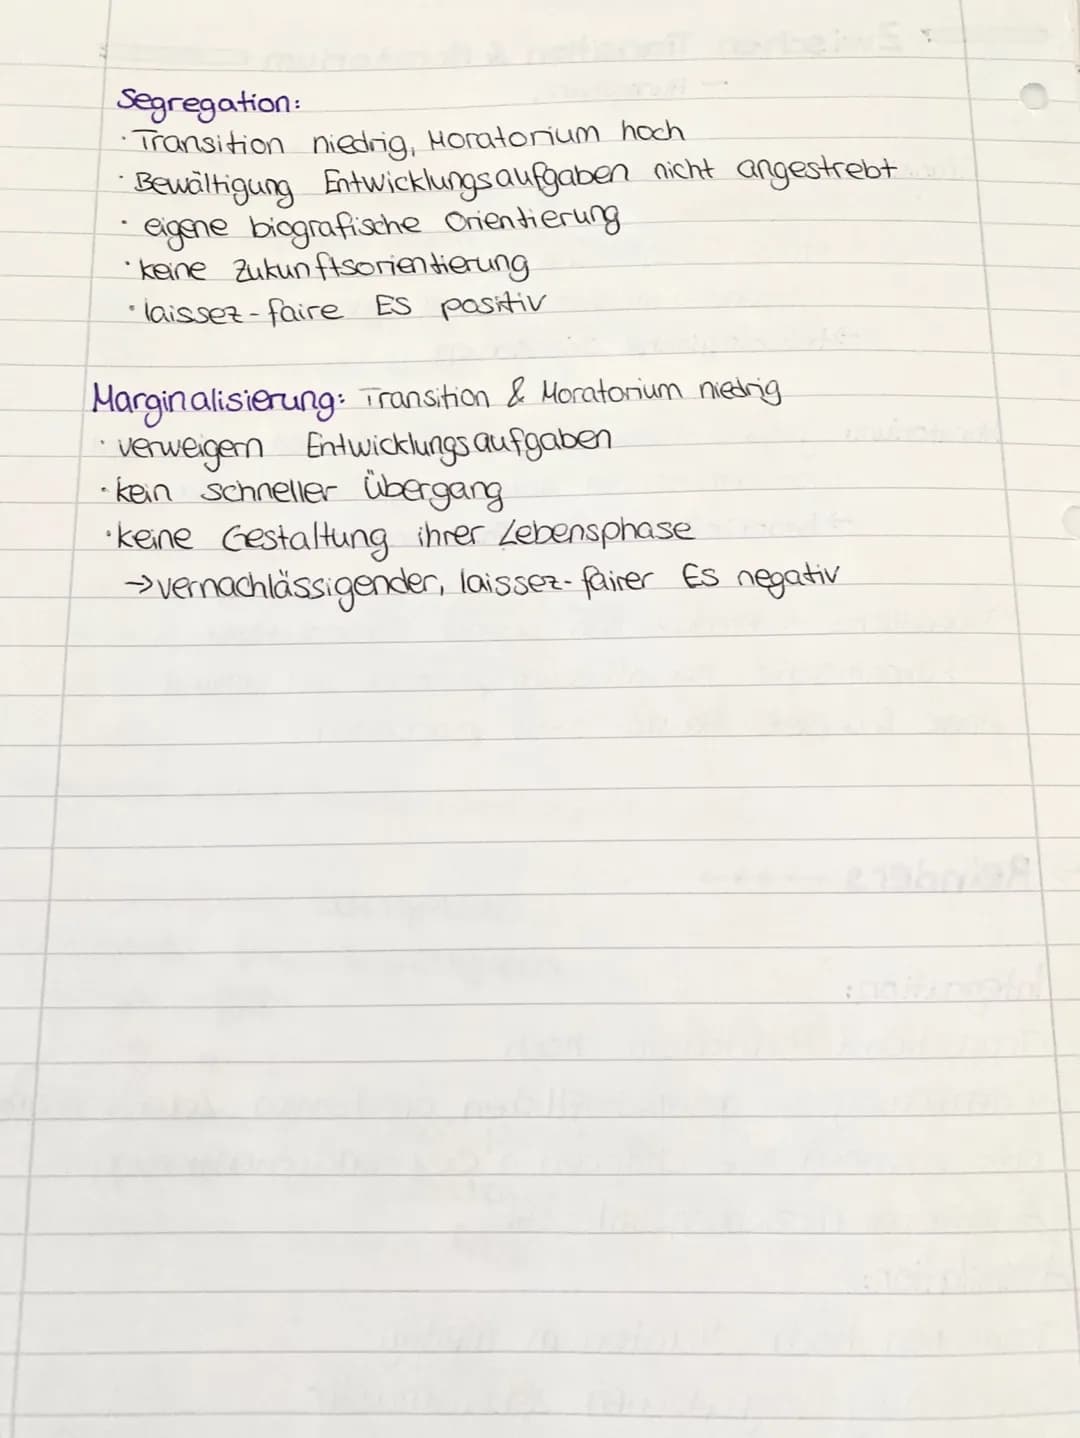 Segregation:
· Transition niedrig, Moratorium hoch
· Bewältigung Entwicklungsaufgaben nicht angestrebt
· eigene biografische Orientierung
· keine Zukunftsorientierung
· laissez-faire ES positiv
Marginalisierung: Transition & Moratorium niedrig
· verweigern Entwicklungsaufgaben
· kein schneller Übergang
· keine Gestaltung ihrer Lebensphase
→ vernachlässigender, laissez-fairer ES negativ